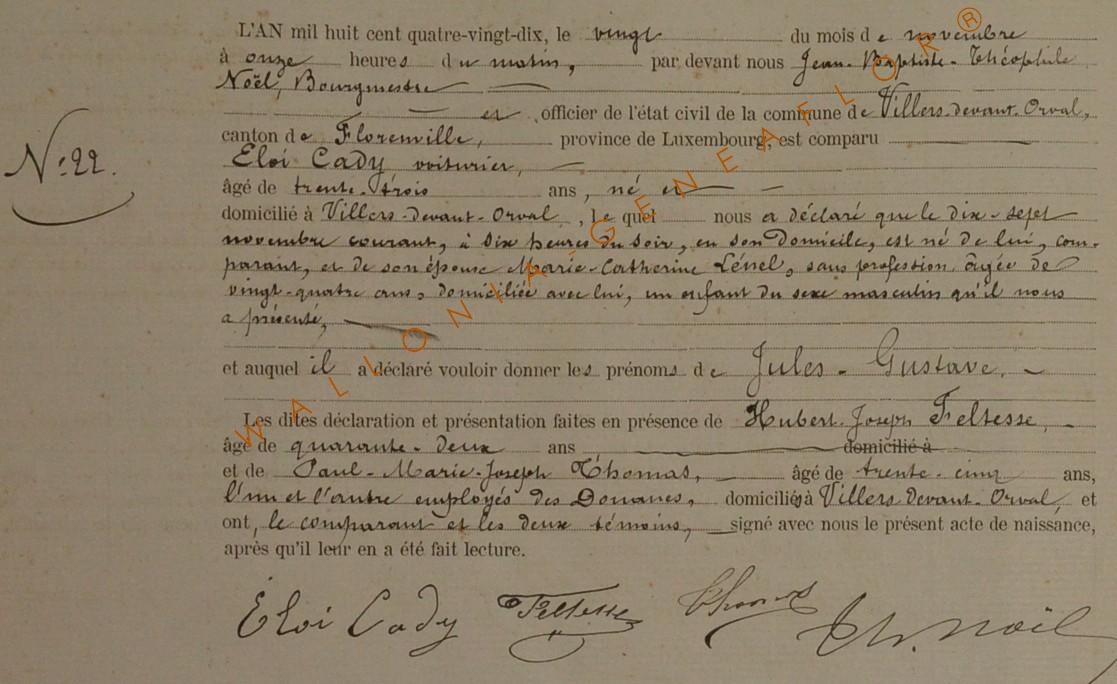 L'AN mil huit cent quatre-vingt-dix, le vingt du mois de novembre
à onze heures du matin, par devant nous Jean-Baptiste-Théophile
Noël, Bourgmestre
officier de l'état civil de la commune de Villers-devant-Orval,
canton de Florenville, province de Luxembourg, est comparu
N° 22.
Eloi Cady voiturier,
âgé de trente-trois ans, né
domicilié à Villers-Devant-Orval, lequel nous a déclaré que le dix-sept
novembre courant, à six heures du soir, en son Domicile, est né de lui, com-
parant, et de son épouse Marie-Catherine Lénel, sans profession, âgée de
vingt-quatre ans, domiciliée avec lui, un enfant du sexe masculin qu'il nous
a présenté,
et auquel il a déclaré vouloir donner les prénoms de Jules-Gustave.
Les dites déclaration et présentation faites en présence de Hubert-Joseph Feltesse,
âgé de quarante-deux ans domicilié à
et de Paul-Marie-Joseph Thomas, âgé de trente-cinq ans,
l'un et l'autre employés des Douanes, domiciliés à Villers Devant-Orval, et
ont, le comparant et les deux témoins, signé avec nous le présent acte de naissance,
après qu'il leur en a été fait lecture.
Éloi Cady Feltesse Thomas Th. Noël
WALLONIA-GENEAFLOR®